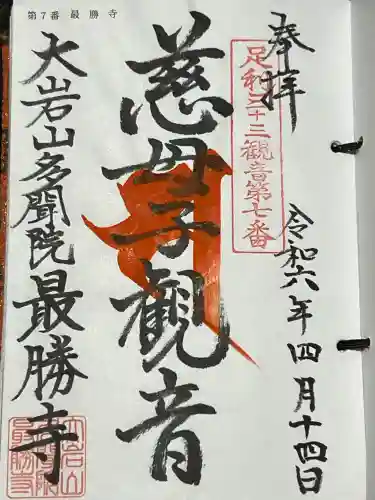 第7番 最勝寺
奉拝
足和三十三観音第七番
令和六年四月十四日
慈母子観音
大岩山多聞院最勝寺